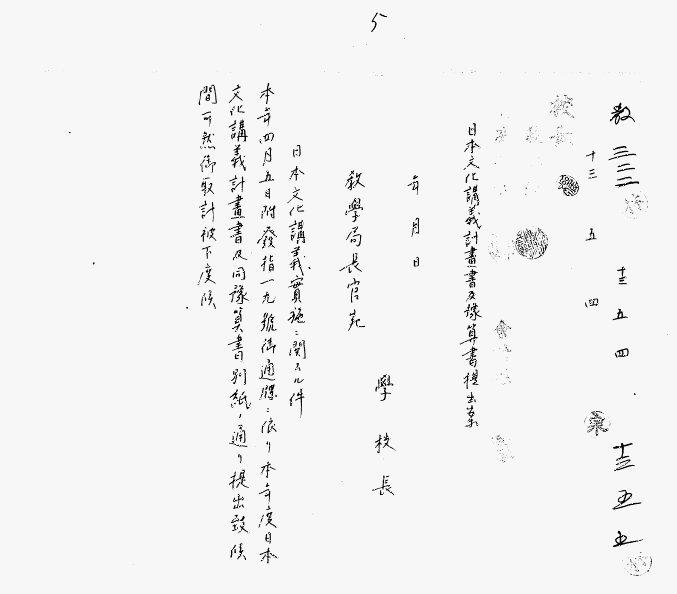 5
教 三二二 十三 五 五
十三 五 四
十三 五 四
日本文化講義計畫書及豫算書提出案
年 月 日
學校長
教學局長官宛
日本文化講義實施ニ関スル件
本年四月五日附發指一九號御通牒ニ依リ本年度日本
文化講義計畫書及同豫算書別紙ノ通リ提出致候
間可然御取計被下度候